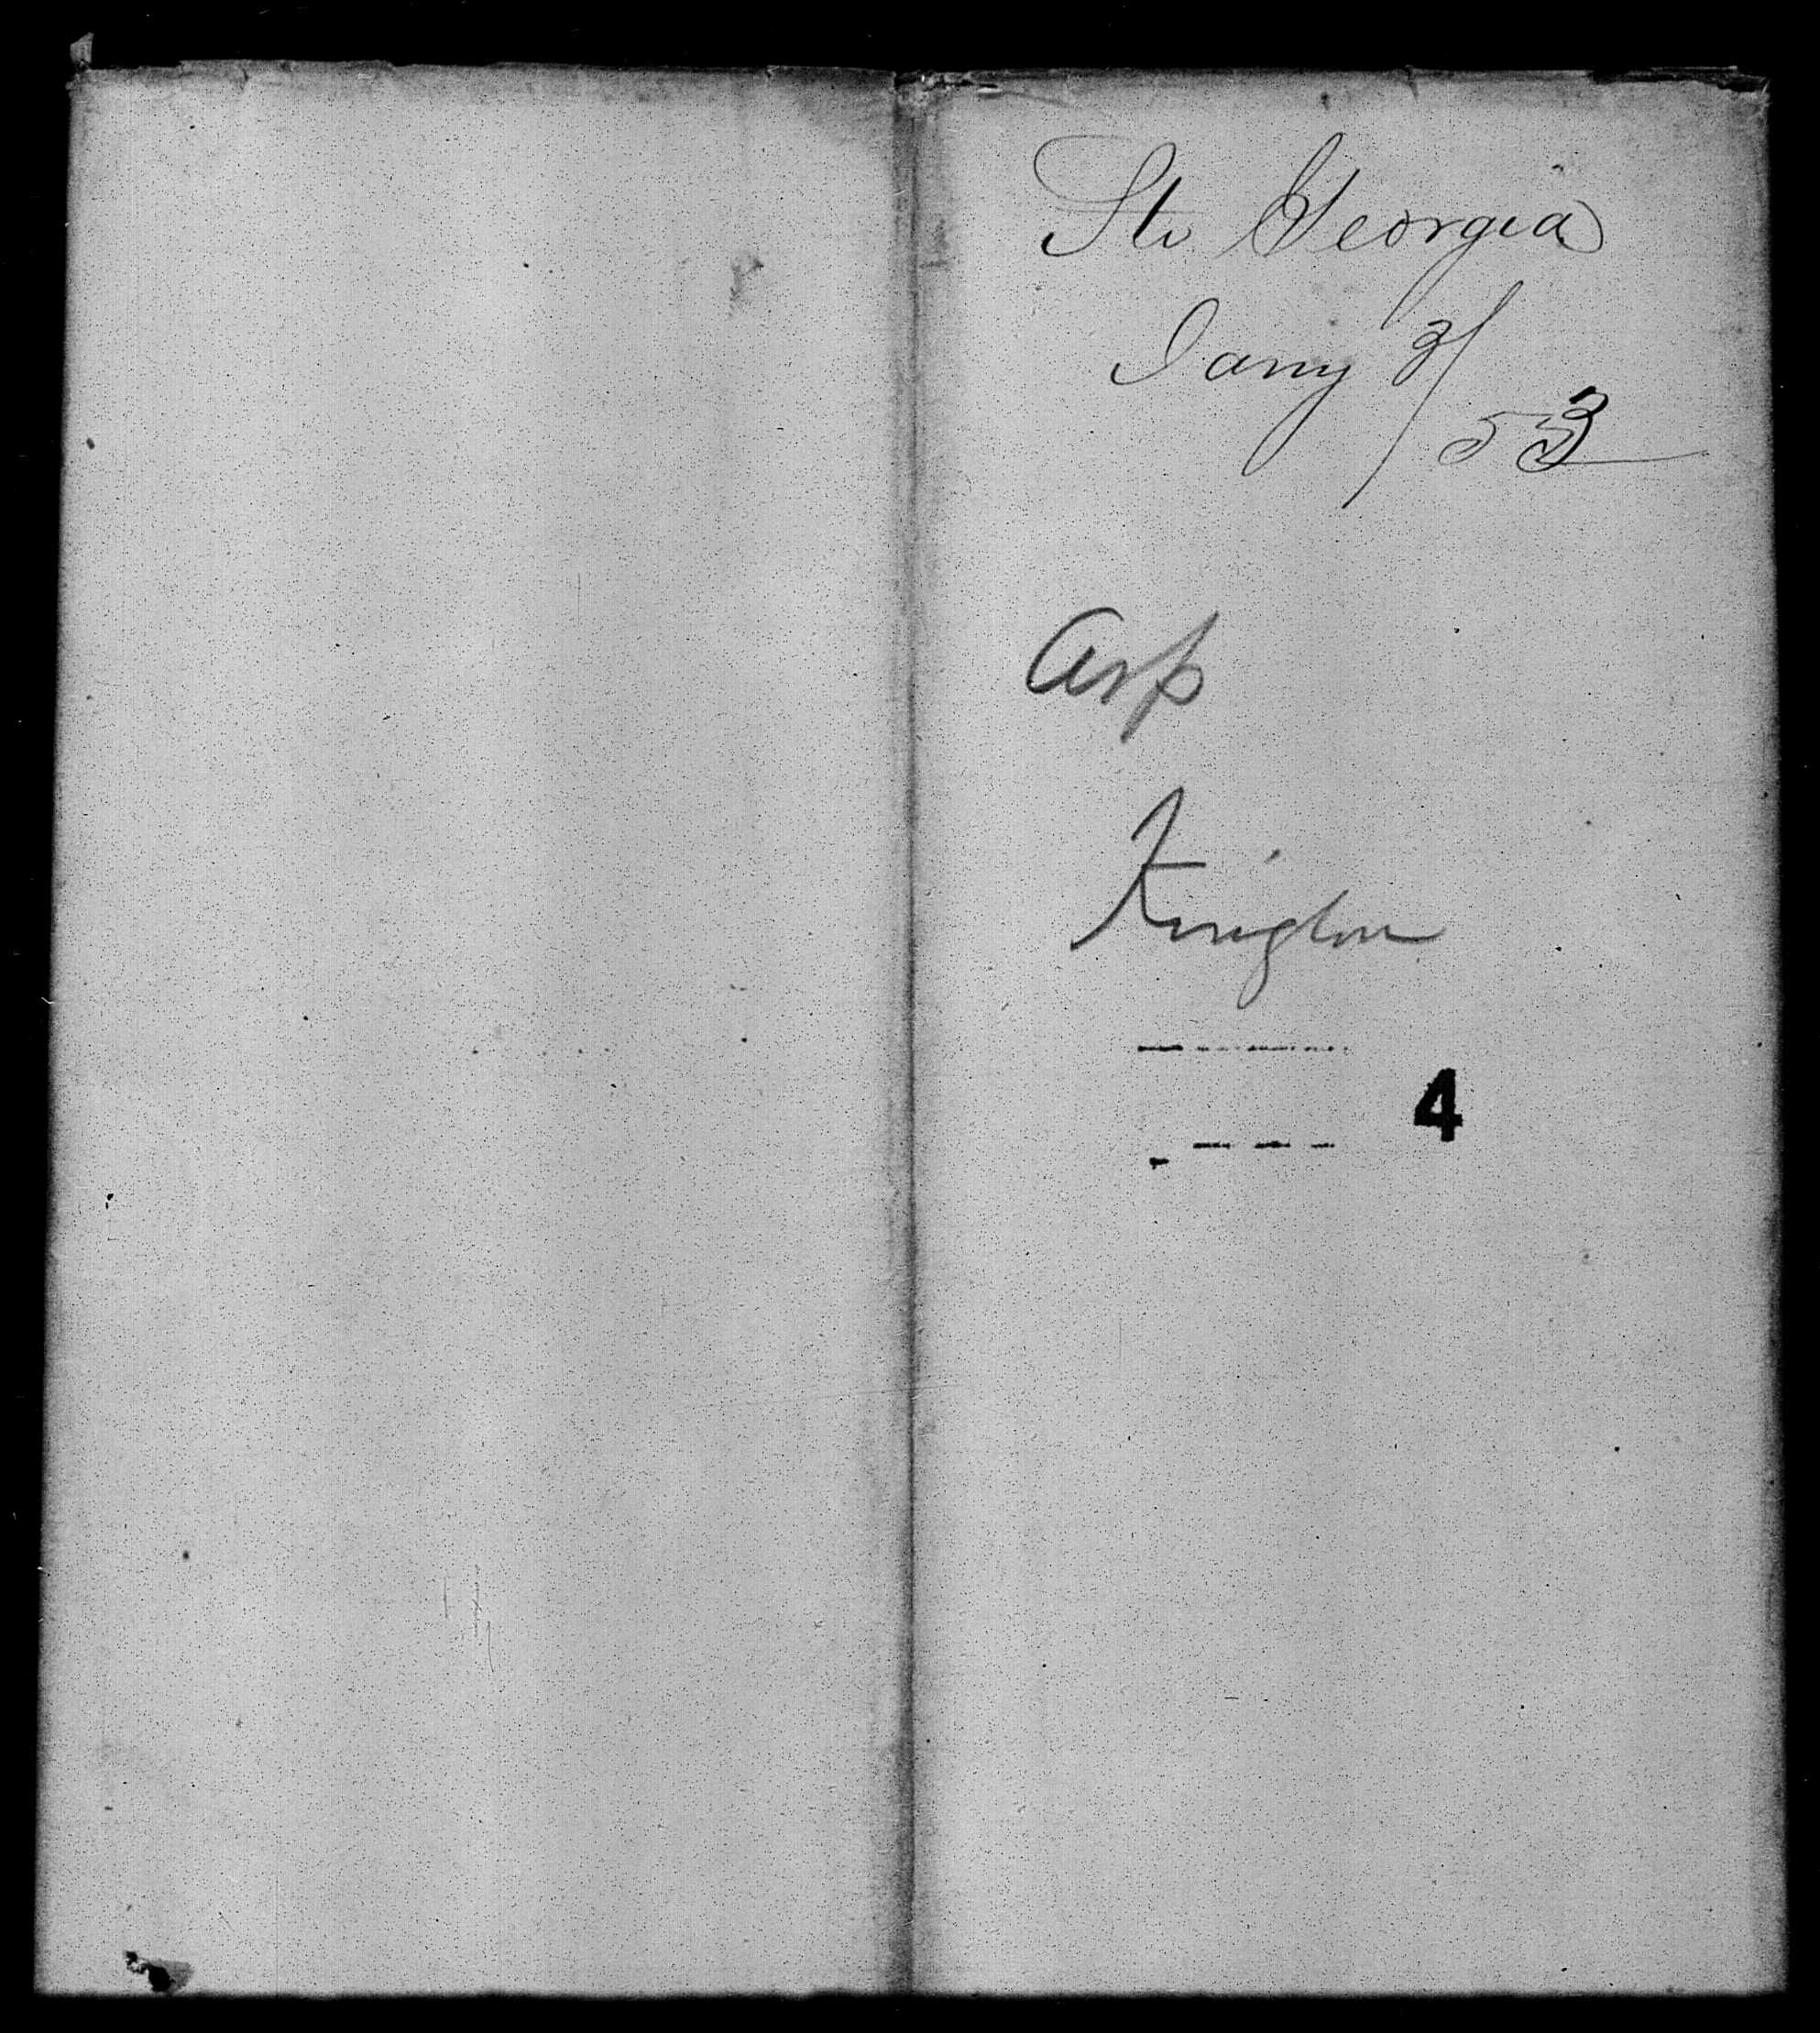 Str Georgia
Jany 3/
53
Asp
Kingston
4